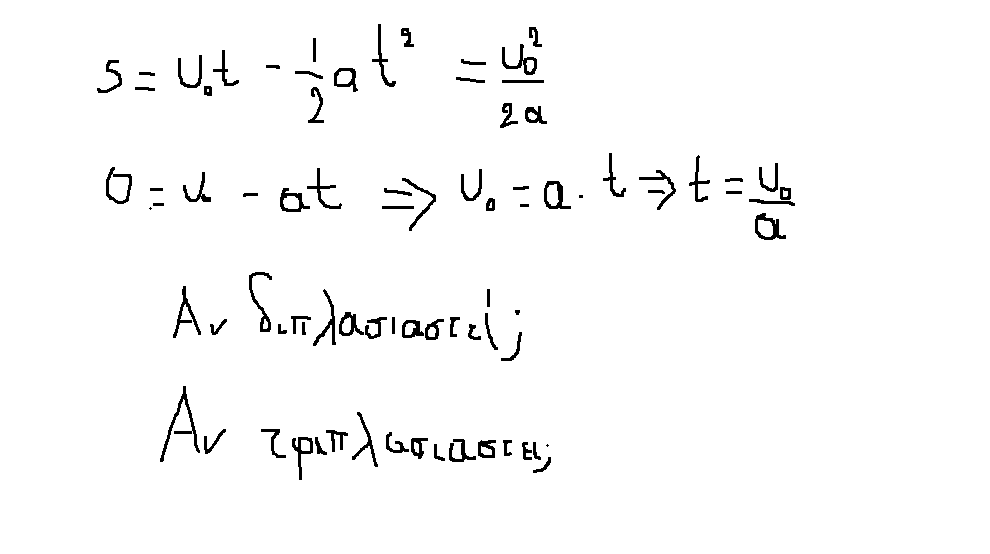 s = υ₀t - 1/2 a t² = υ₀²/2a
0 = υ - at ⇒ υ₀ = a · t ⇒ t = υ₀/a
Αν διπλασιαστεί;
Αν τριπλασιαστει;